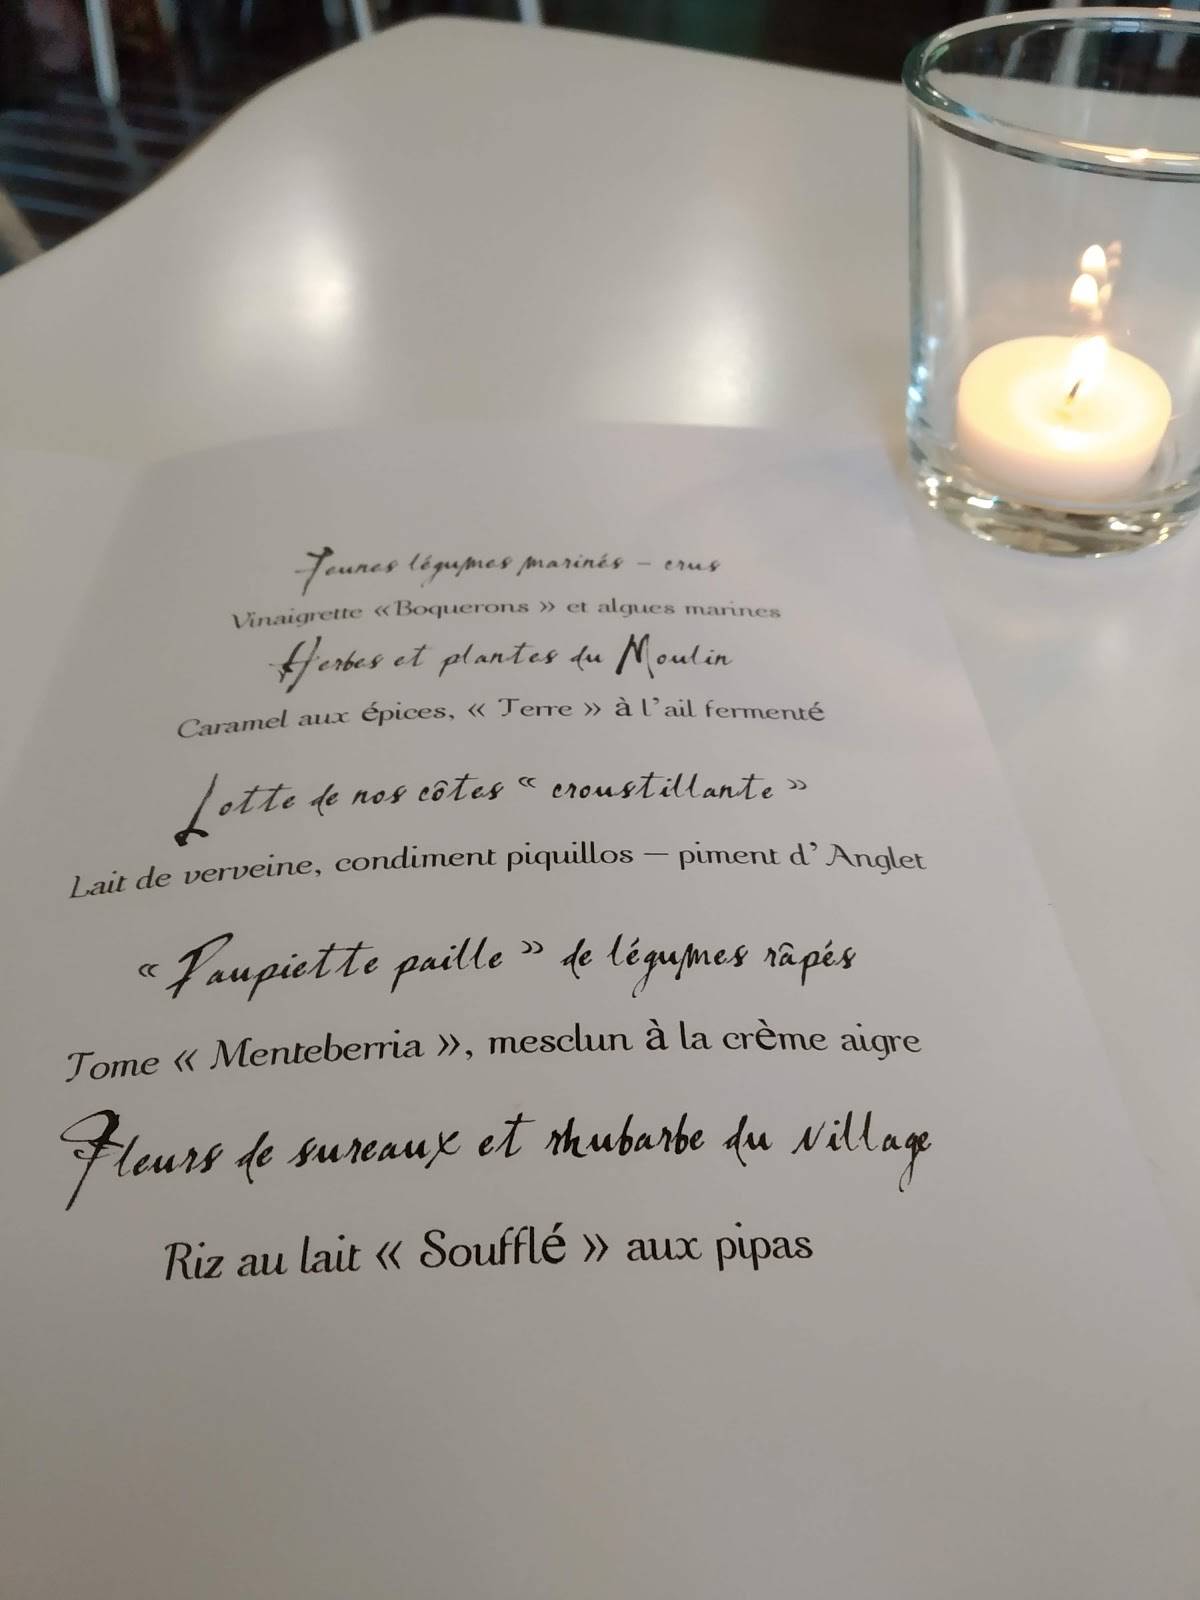 Jeunes légumes marinés – crus
Vinaigrette « Boquerons » et algues marines
Herbes et plantes du Moulin
Caramel aux épices, « Terre » à l'ail fermenté
Lotte de nos côtes « croustillante »
Lait de verveine, condiment piquillos – piment d' Anglet
« Paupiette paille » de légumes râpés
Tome « Menteberria », mesclun à la crème aigre
Fleurs de sureaux et rhubarbe du village
Riz au lait « Soufflé » aux pipas